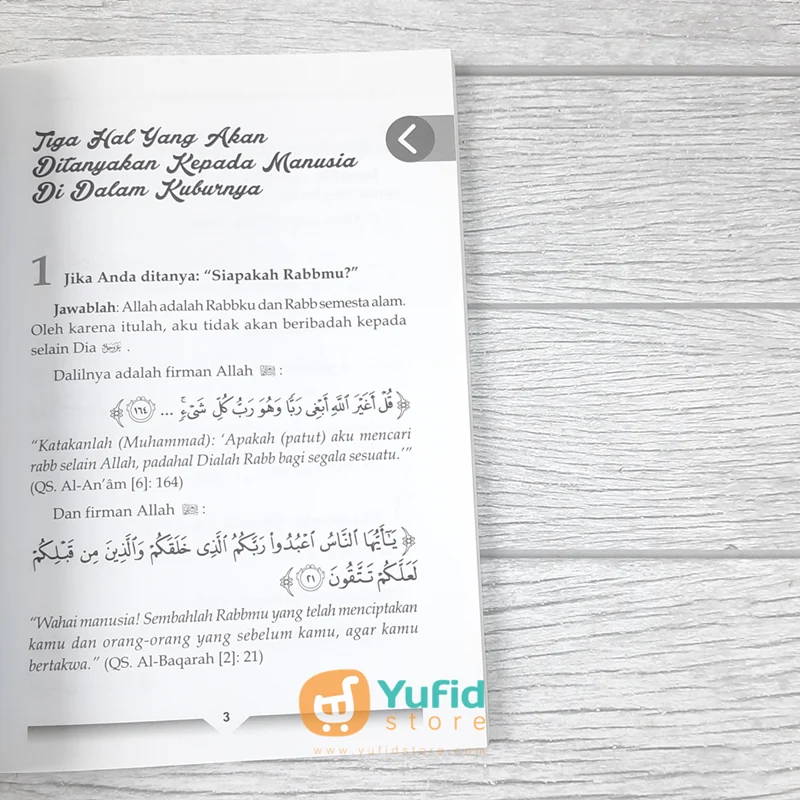 Tiga Hal Yang Akan
Ditanyakan Kepada Manusia
Di Dalam Kuburnya
1 Jika Anda ditanya: “Siapakah Rabbmu?”
Jawablah: Allah adalah Rabbku dan Rabb semesta alam.
Oleh karena itulah, aku tidak akan beribadah kepada
selain Dia .
Dalilnya adalah firman Allah ﷻ :
﴿ قُلْ أَغَيْرَ ٱللَّهِ أَبْغِى رَبًّا وَهُوَ رَبُّ كُلِّ شَىْءٍ ۚ ... ١٦٤ ﴾
“Katakanlah (Muhammad): ‘Apakah (patut) aku mencari
rabb selain Allah, padahal Dialah Rabb bagi segala sesuatu.’”
(QS. Al-An’âm [6]: 164)
Dan firman Allah ﷻ :
﴿ يَـٰٓأَيُّهَا ٱلنَّاسُ ٱعْبُدُوا۟ رَبَّكُمُ ٱلَّذِى خَلَقَكُمْ وَٱلَّذِينَ مِن قَبْلِكُمْ
لَعَلَّكُمْ تَتَّقُونَ ٢١ ﴾
“Wahai manusia! Sembahlah Rabbmu yang telah menciptakan
kamu dan orang-orang yang sebelum kamu, agar kamu
bertakwa.” (QS. Al-Baqarah [2]: 21)
3
Yufid
store
www.yufidstore.com